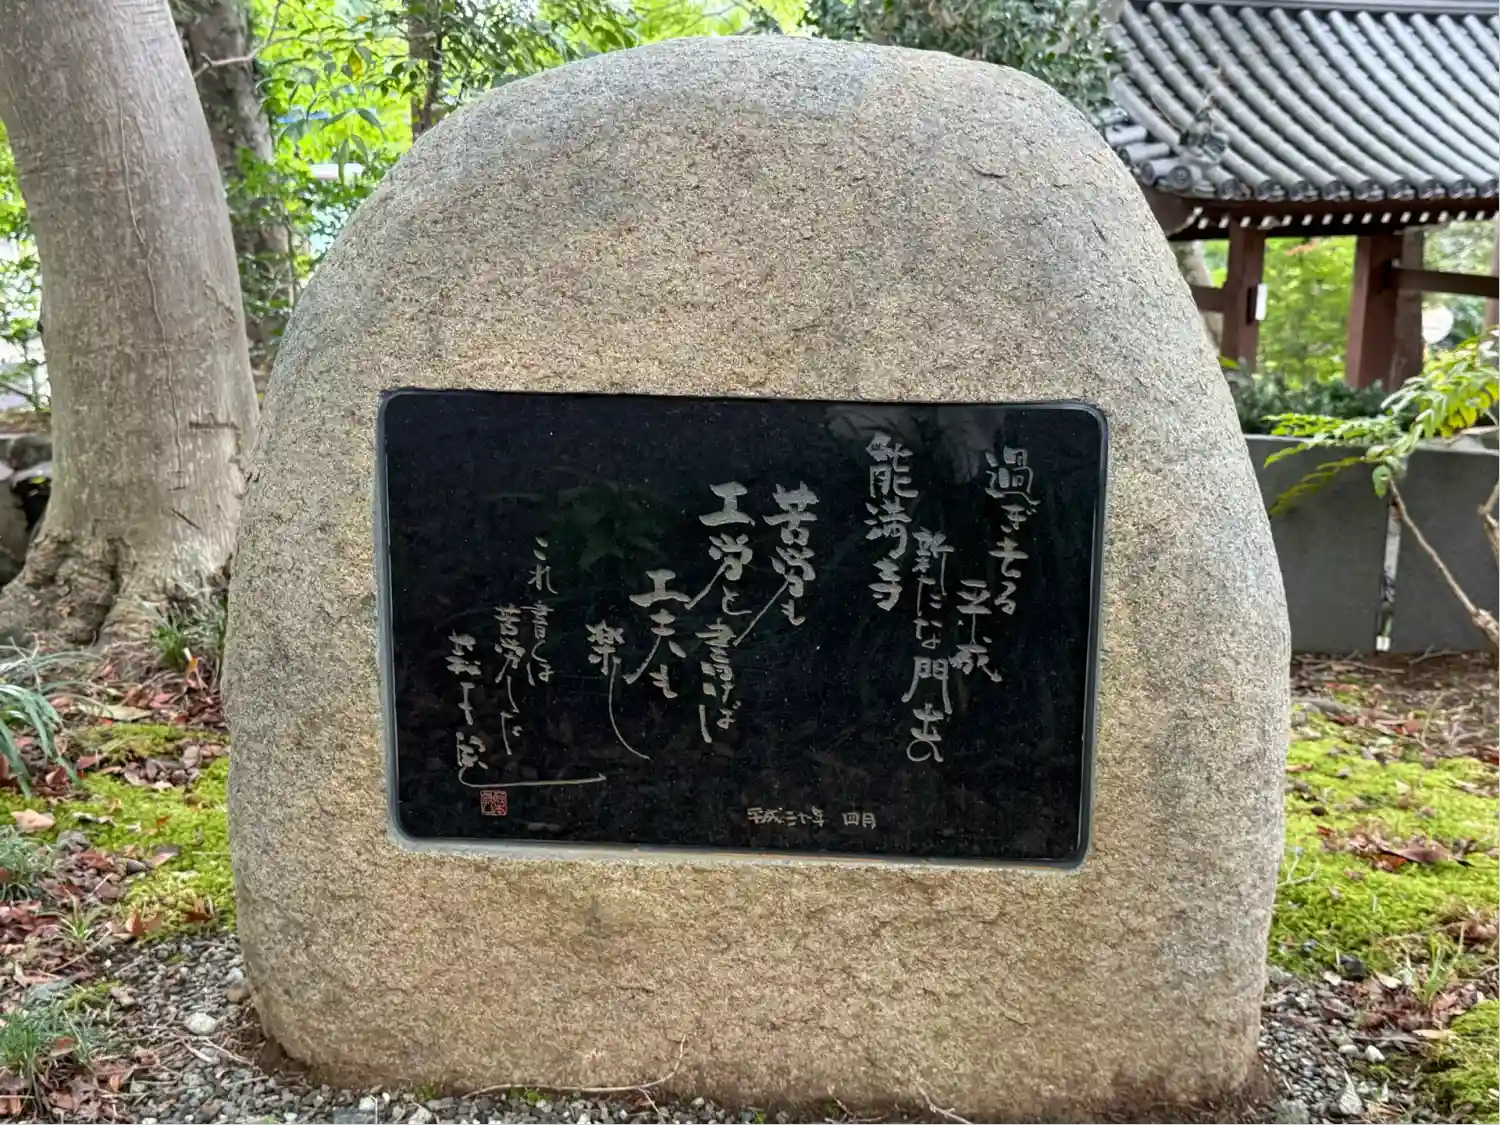 過ぎ去る
平成
新たな門出
能満寺
苦労も
工労と書けば
工夫も
楽し
これ書くは
苦労した
平成三十年 四月